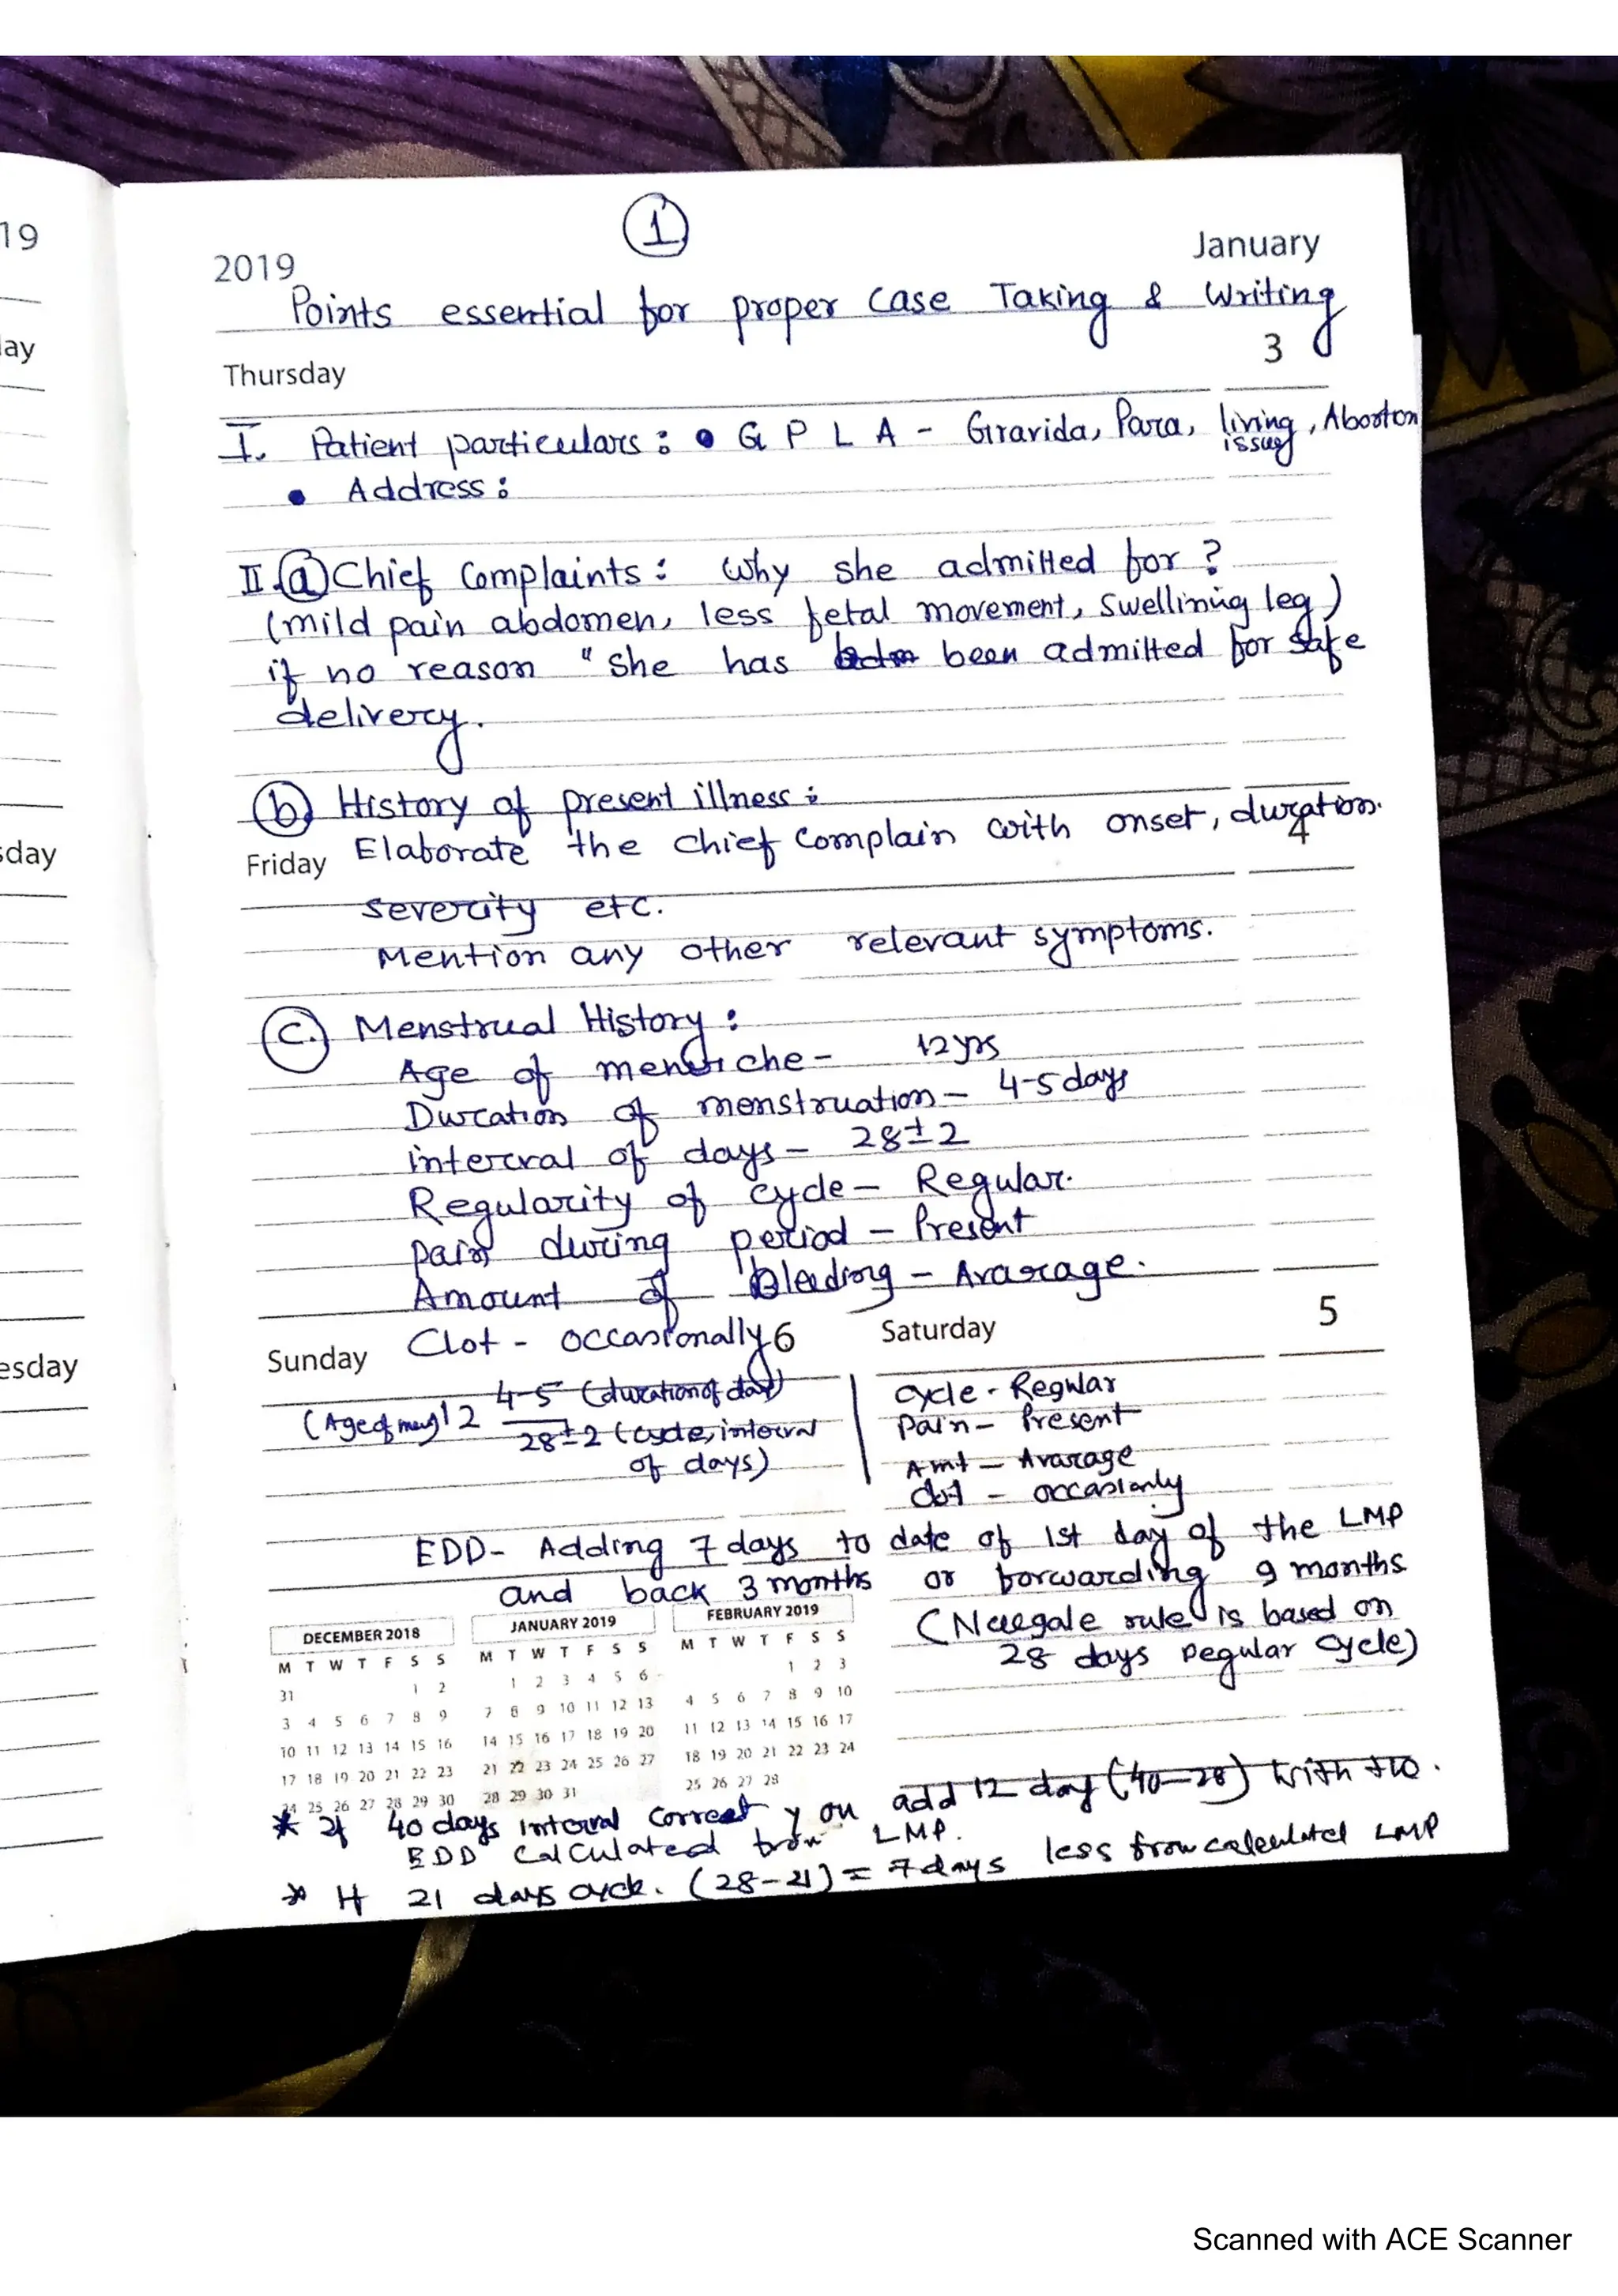 19
ay
sday
esday
1
2019
January
Points essential for proper case Taking & Writing
Thursday
3
I. Patient particulars : • G P L A - Gravida, Para, living issue, Abortion
• Address :
II. a Chief Complaints : Why she admitted for ?
(mild pain abdomen, less fetal movement, swelling leg)
if no reason "She has been admitted for safe
delivery.
b) History of present illness :
Elaborate the chief complain with onset, duration.
Friday
4
severity etc.
Mention any other relevant symptoms.
C. Menstrual History :
Age of menarche - 12 yrs
Duration of menstruation - 4-5 days
interval of days - 28±2
Regularity of cycle - Regular.
pain during period - Present
Amount of bleeding - Avarage.
Clot - occasionally
Sunday
6
Saturday
5
(Age of men) 12 4-5 (duration of day)
28±2 (cycle, interval
of days)
cycle - Regular
Pain - Present
Amt - Avarage
clot - occasionly
EDD - Adding 7 days to date of 1st day of the LMP
and back 3 months or forwarding 9 months
(Naegale rule is based on
28 days regular cycle)
DECEMBER 2018
M T W T F S S
31 1 2
3 4 5 6 7 8 9
10 11 12 13 14 15 16
17 18 19 20 21 22 23
24 25 26 27 28 29 30
JANUARY 2019
M T W T F S S
1 2 3 4 5 6
7 8 9 10 11 12 13
14 15 16 17 18 19 20
21 22 23 24 25 26 27
28 29 30 31
FEBRUARY 2019
M T W T F S S
1 2 3
4 5 6 7 8 9 10
11 12 13 14 15 16 17
18 19 20 21 22 23 24
25 26 27 28
* If 40 days interval correct you add 12 day (40-28) with
EDD calculated from LMP.
* If 21 days cycle. (28-21) = 7 days less from calculated LMP
Scanned with ACE Scanner